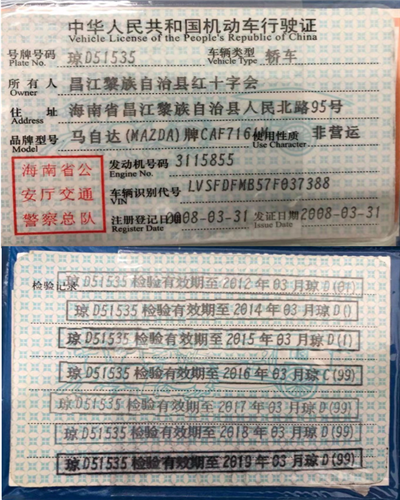 中华人民共和国机动车行驶证
Vehicle License of the People's Republic of China
号牌号码 琼D51535 车辆类型 轿车
Plate No. Vehicle Type
所有人 昌江黎族自治县红十字会
Owner
住址 海南省昌江黎族自治县人民北路95号
Address
品牌型号 马自达(MAZDA)牌CAF716 使用性质 非营运
Model Use Character
海南省公
安厅交通
警察总队
发动机号码 3115855
Engine No.
车辆识别代号 LVSFDFMB57F037388
VIN
注册登记日期 2008-03-31 发证日期 2008-03-31
Register Date Issue Date
检验记录
琼D51535 检验有效期至 2012 年 03 月琼 D(01)
琼D51535 检验有效期至 2014 年 03 月琼 D()
琼D51535 检验有效期至 2015 年 03 月琼 D(1)
琼D51535 检验有效期至 2016 年 03 月琼 C(99)
琼D51535 检验有效期至 2017 年 03 月琼 D(99)
琼D51535 检验有效期至 2018 年 03 月琼 D(99)
琼D51535 检验有效期至 2019 年 03 月琼 D(99)